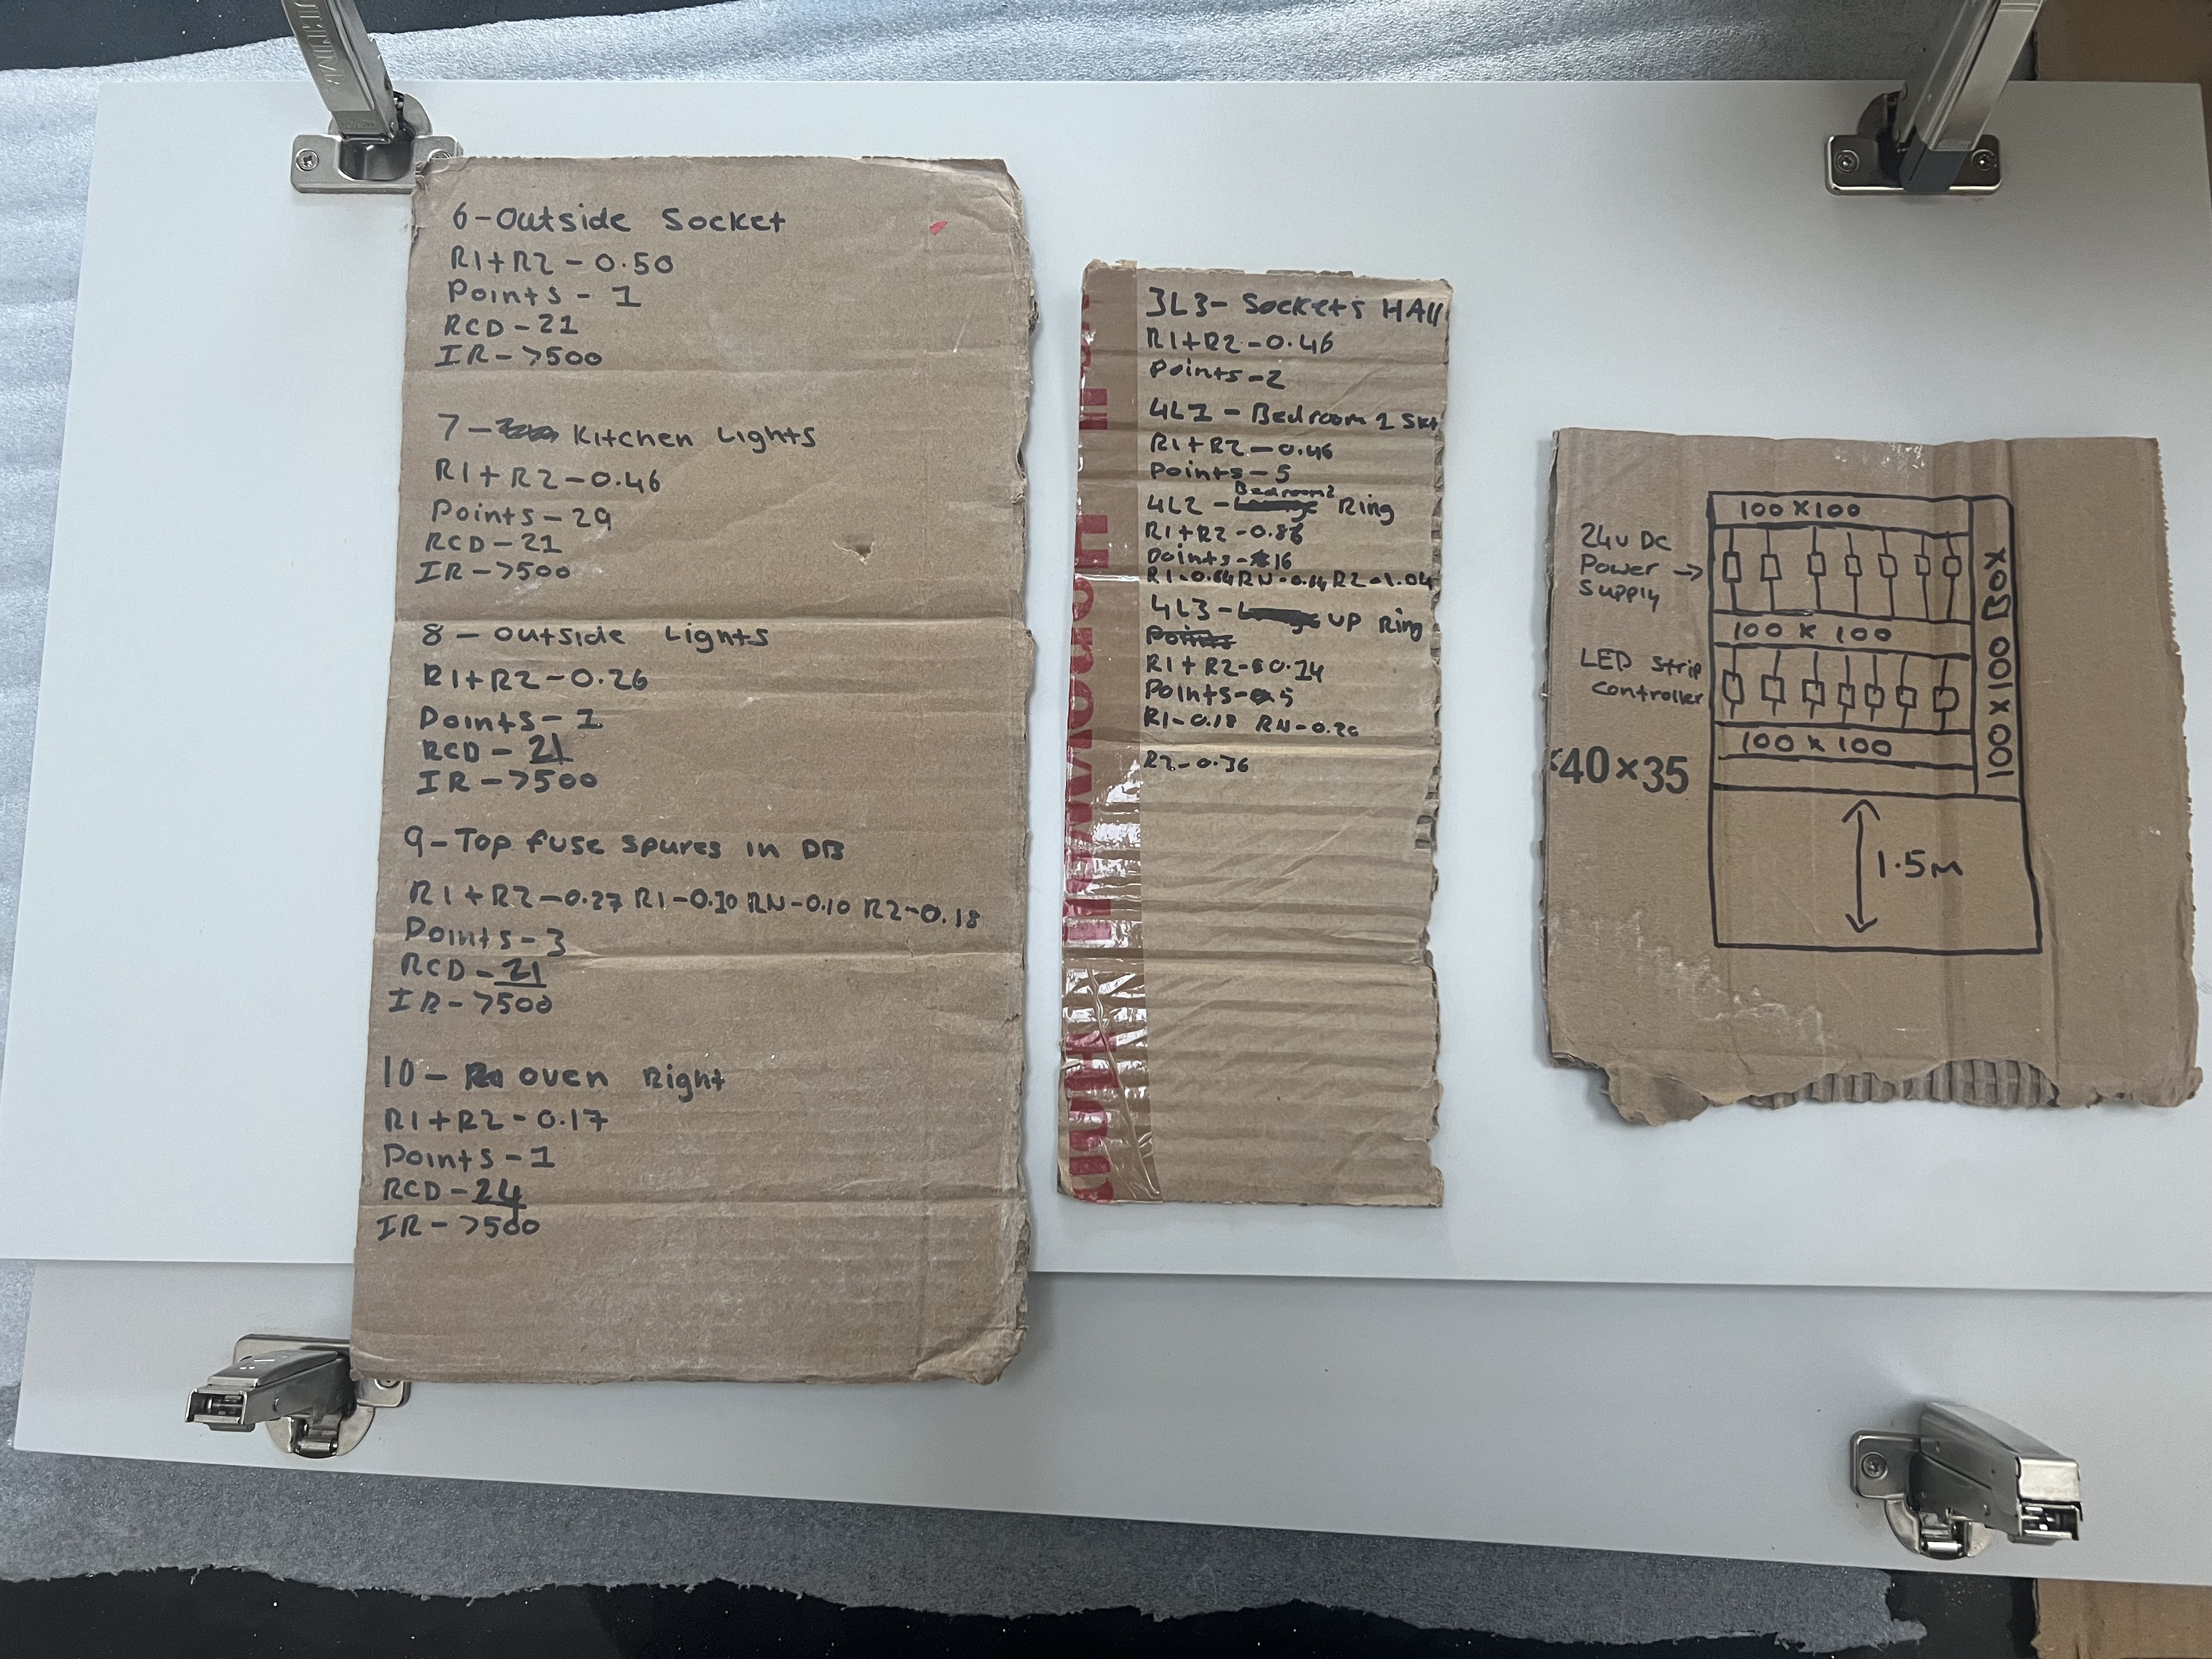 6-Outside Socket
R1+R2-0.50
Points-1
RCD-21
IR->500
7- Kitchen Lights
R1+R2-0.46
Points-29
RCD-21
IR->500
8-Outside Lights
R1+R2-0.26
Points-1
RCD-21
IR->500
9-Top fuse spures in DB
R1+R2-0.27 R1-0.10 RN-0.10 R2-0.18
Points-3
RCD-21
IR->500
10- oven Right
R1+R2-0.17
Points-1
RCD-24
IR->500
3L3-Sockets HAll
R1+R2-0.46
Points-2
4L1-Bedroom 1 Skt
R1+R2-0.46
Points-5
4L2-Bedroom2 Ring
R1+R2-
Points-16
R1-0.64 RN-0.64 R2-1.04
4L3- UP Ring
R1+R2-
Points-5
R1-0.18 RN-
R2-0.36
100x100
24v DC
Power
Supply
100x100
LED Strip
Controller
100x100
100x100 Box
40x35
1.5M